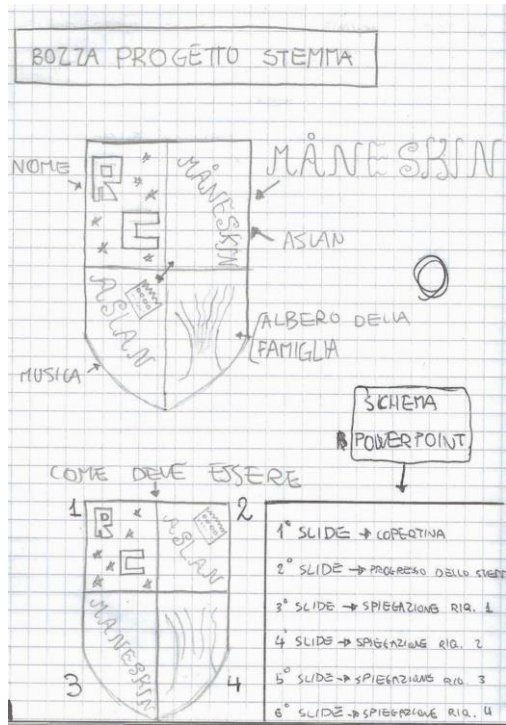 BOZZA PROGETTO STEMMA
NOME
R
C
MÅNESKIN
MÅNESKIN
ASLAN
ASLAN
ALBERO DELLA
FAMIGLIA
MUSICA
SCHEMA
POWERPOINT
COME DEVE ESSERE
1
2
R
C
ASLAN
MANESKIN
3
4
1° SLIDE → COPERTINA
2° SLIDE → PROGRESO DELLO STEMMA
3° SLIDE → SPIEGAZIONE RIQ. 1
4° SLIDE → SPIEGAZIONE RIQ. 2
5° SLIDE → SPIEGAZIONE RIQ. 3
6° SLIDE → SPIEGAZIONE RIQ. 4